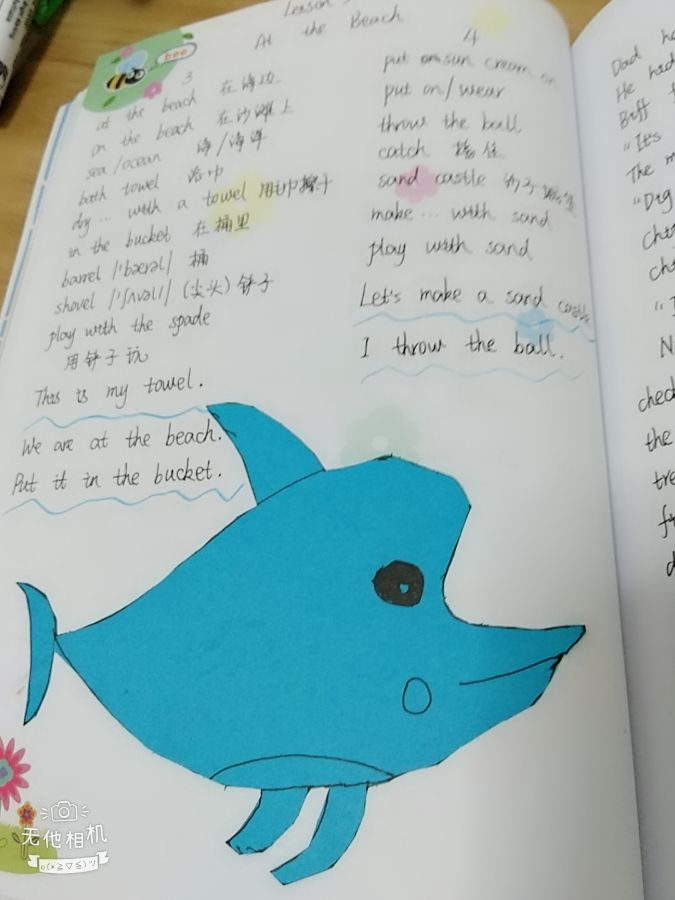 Lesson
At the Beach
bee
3
at the beach 在海边
on the beach 在沙滩上
sea/ocean 海/海洋
bath towel 浴巾
dry... with a towel 用毛巾擦干
in the bucket 在桶里
barrel /'bærəl/ 桶
shovel /'ʃʌvəl/ (尖头)铲子
play with the spade
用铲子玩
This is my towel.
We are at the beach.
Put it in the bucket.
4
put on sun cream on
put on/wear
throw the ball
catch 接住
sand castle
make... with sand
play with sand
Let's make a sand castle
I throw the ball.
Dad
He had
Biff
"It's
The
"Dig
"I
N
check
the
无他相机